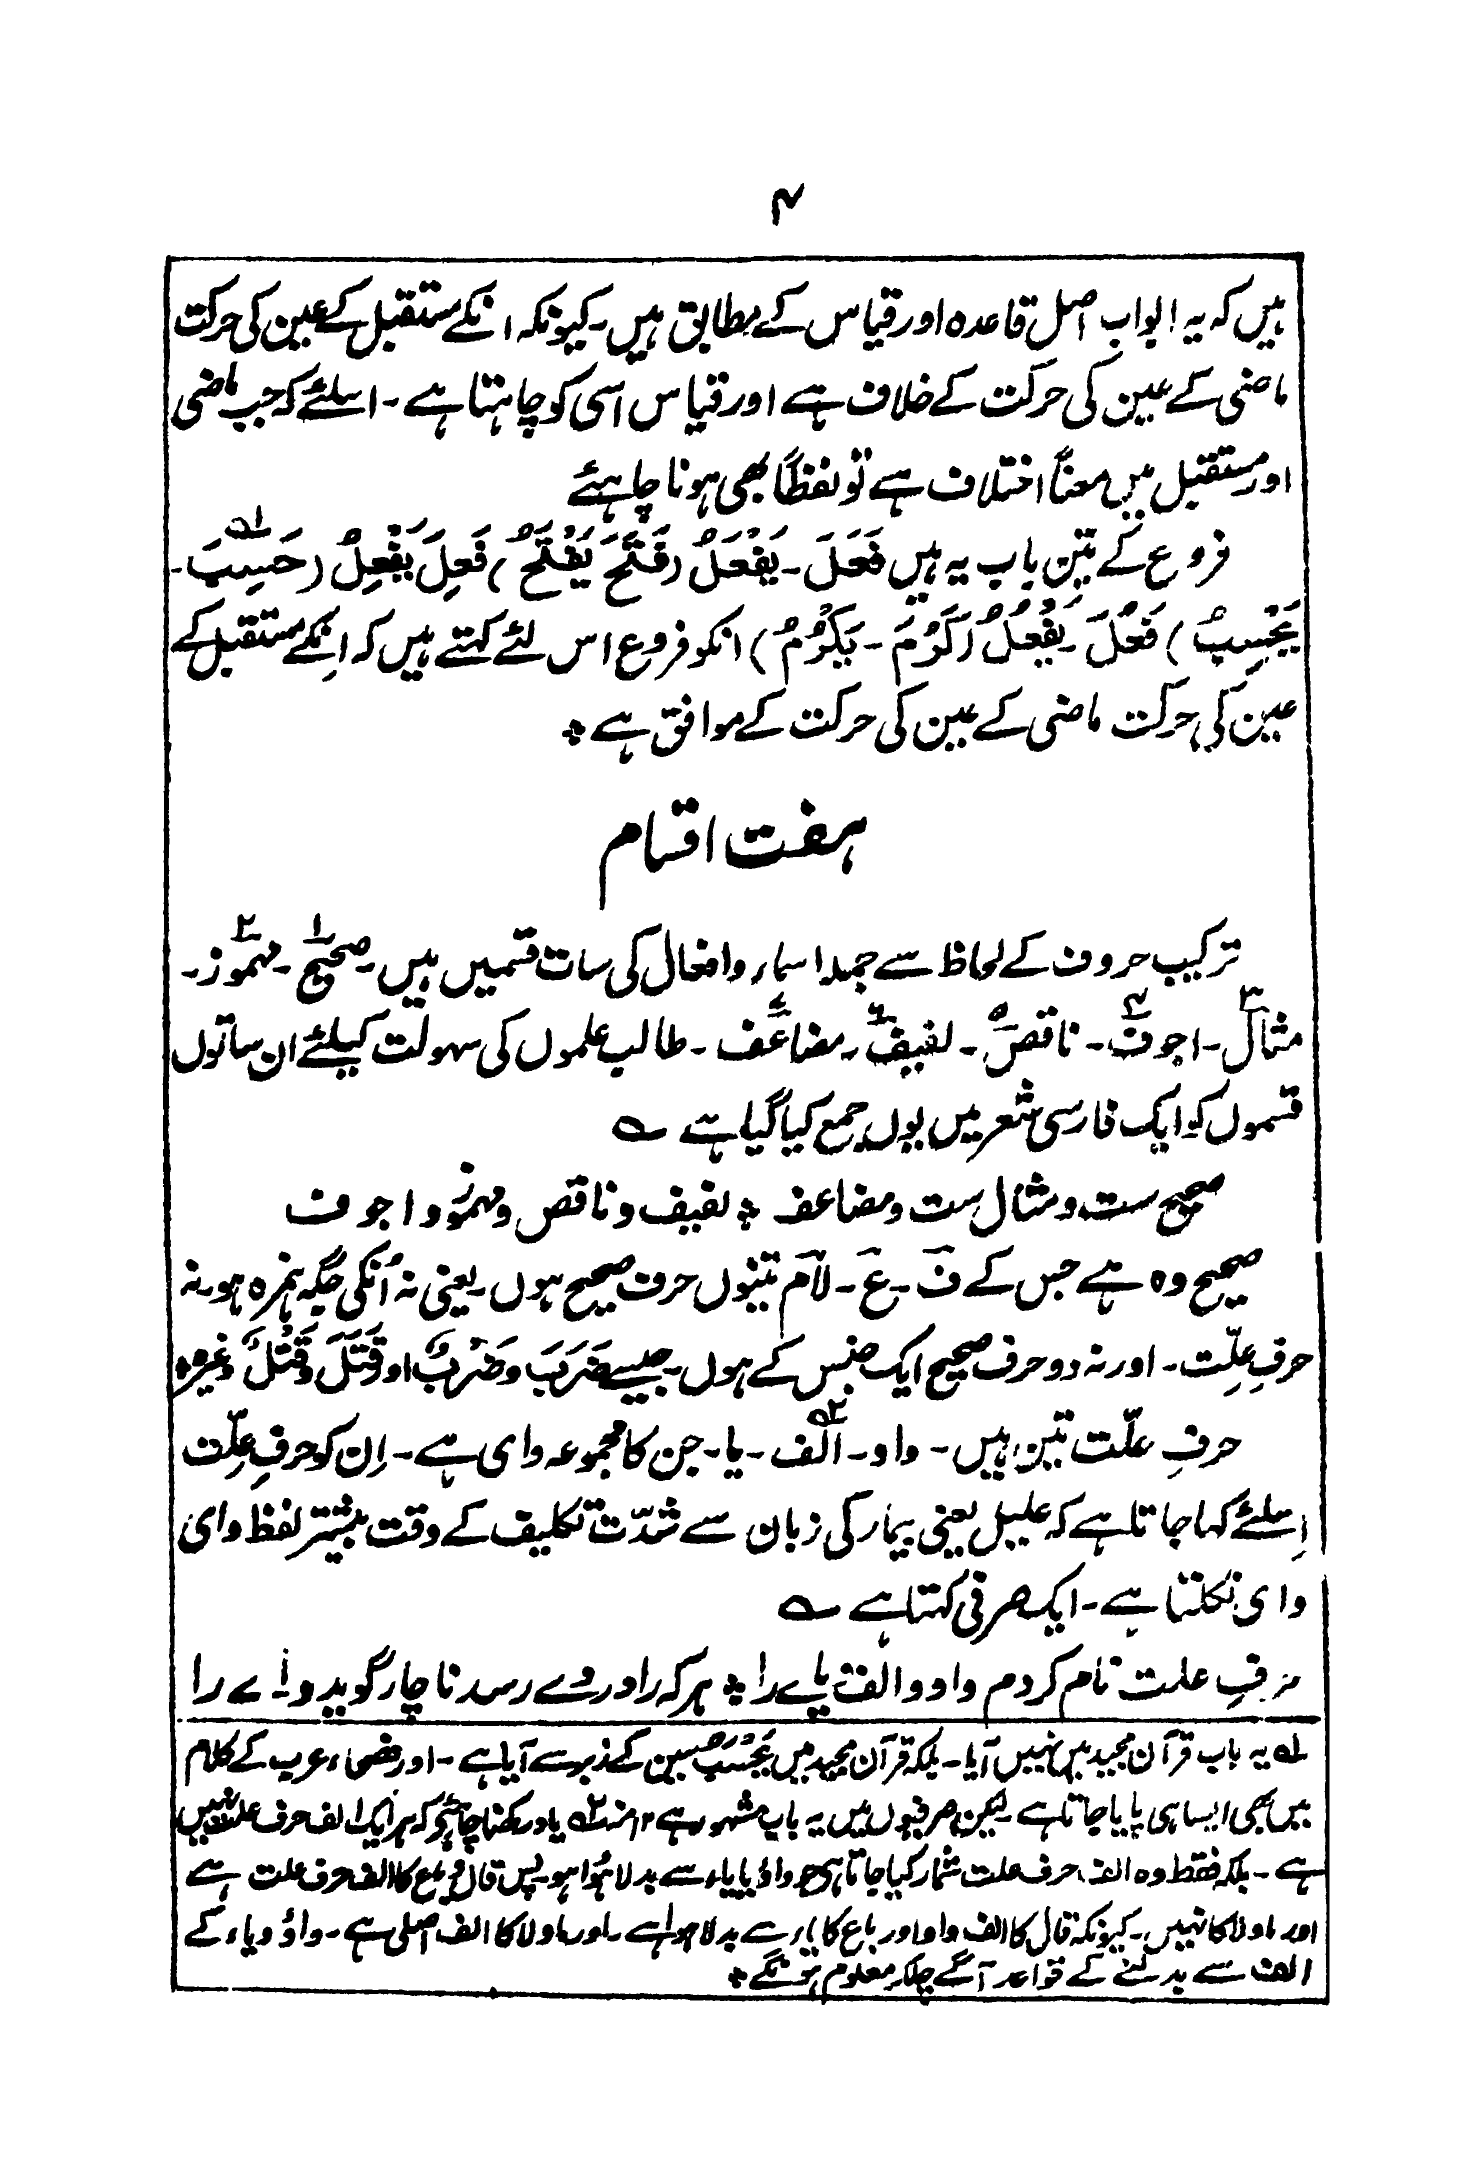 ۴
ہیں کہ یہ ابواب اصل قاعدہ اور قیاس کے مطابق ہیں۔ کیونکہ انکے مستقبل کے عین کی حرکت
ماضی کے عین کی حرکت کے خلاف ہے اور قیاس اسی کو چاہتا ہے۔ اسلئے کہ جب ماضی
اور مستقبل میں معناً اختلاف ہے تو لفظاً بھی ہونا چاہئے
فروع کے تین باب یہ ہیں فَعَلَ۔ یَفْعَلُ (فَتَحَ یَفْتَحُ) فَعِلَ یَفْعِلُ (حَسِبَ۔ ۱ہ
یَحْسِبُ) فَعُلَ۔ یَفْعُلُ (کَرُمَ۔ یَکْرُمُ) انکو فروع اس لئے کہتے ہیں کہ اِنکے مستقبل کے
عین کی حرکت ماضی کے عین کی حرکت کے موافق ہے ٭
ہفت اقسام
ترکیب حروف کے لحاظ سے جملہ اسماء وافعال کی سات قسمیں ہیں۔ صحیح۱۔ مہموز۲۔
مثال۳۔ اجوف۴۔ ناقص۵۔ لفیف۶۔ مضاعف۷۔ طالب علموں کی سہولت کیلئے ان ساتوں
قسموں کو ایک فارسی شعر میں یوں جمع کیا گیا ہے ؎
صحیح ست و مثال ست و مضاعف ٭ لفیف و ناقص و مہموز و اجوف
صحیح وہ ہے جس کے فَ۔ عَ۔ لام تینوں حرف صحیح ہوں۔ یعنی نہ اُنکی جگہ ہمزہ ہو۔ نہ
حرفِ علّت۔ اور نہ دو حرف صحیح ایک جنس کے ہوں۔ جیسے ضَرَبَ وضَرْبٌ اور قَتَلَ وقَتْلٌ وغیرہ
حرفِ علّت تین ہیں۔ واو۔ الف۲ہ۔ یا۔ جن کا مجموعہ وای ہے۔ اِن کو حرفِ علّت
اِسلئے کہا جاتا ہے کہ علیل یعنی بیمار کی زبان سے شدّت تکلیف کے وقت بیشتر لفظ وای
وای نکلتا ہے۔ ایک صرفی کہتا ہے ؎
حرفِ علت نام کردم واو والف یاے را ٭ ہر کہ را دردے رسد ناچار گوید واے را
۱ہ یہ باب قرآن مجید میں نہیں آیا۔ بلکہ قرآن مجید میں یَحْسَبُ سین کے زبر سے آیا ہے۔ اور فصحاء عرب کے کلام
میں بھی ایسا ہی پایا جاتا ہے۔ لیکن صرفیوں میں یہ باب مشہور ہے ۱۲ منہ ۲ہ یاد رکھنا چاہئے کہ ہر ایک الف حرف علت نہیں
ہے۔ بلکہ فقط وہ الف حرف علت شمار کیا جاتا ہی جو واؤ یا یاء سے بدلا ہُوا ہو۔ پس قال و باع کا الف حرف علت ہے
اور ماولا کا نہیں۔ کیونکہ قال کا الف واو اور باع کا یاء سے بدلا ہوا ہے۔ اور ماولا کا الف اصلی ہے۔ واؤ ویاء کے
الف سے بدلنے کے قواعد آگے چلکر معلوم ہونگے ٭